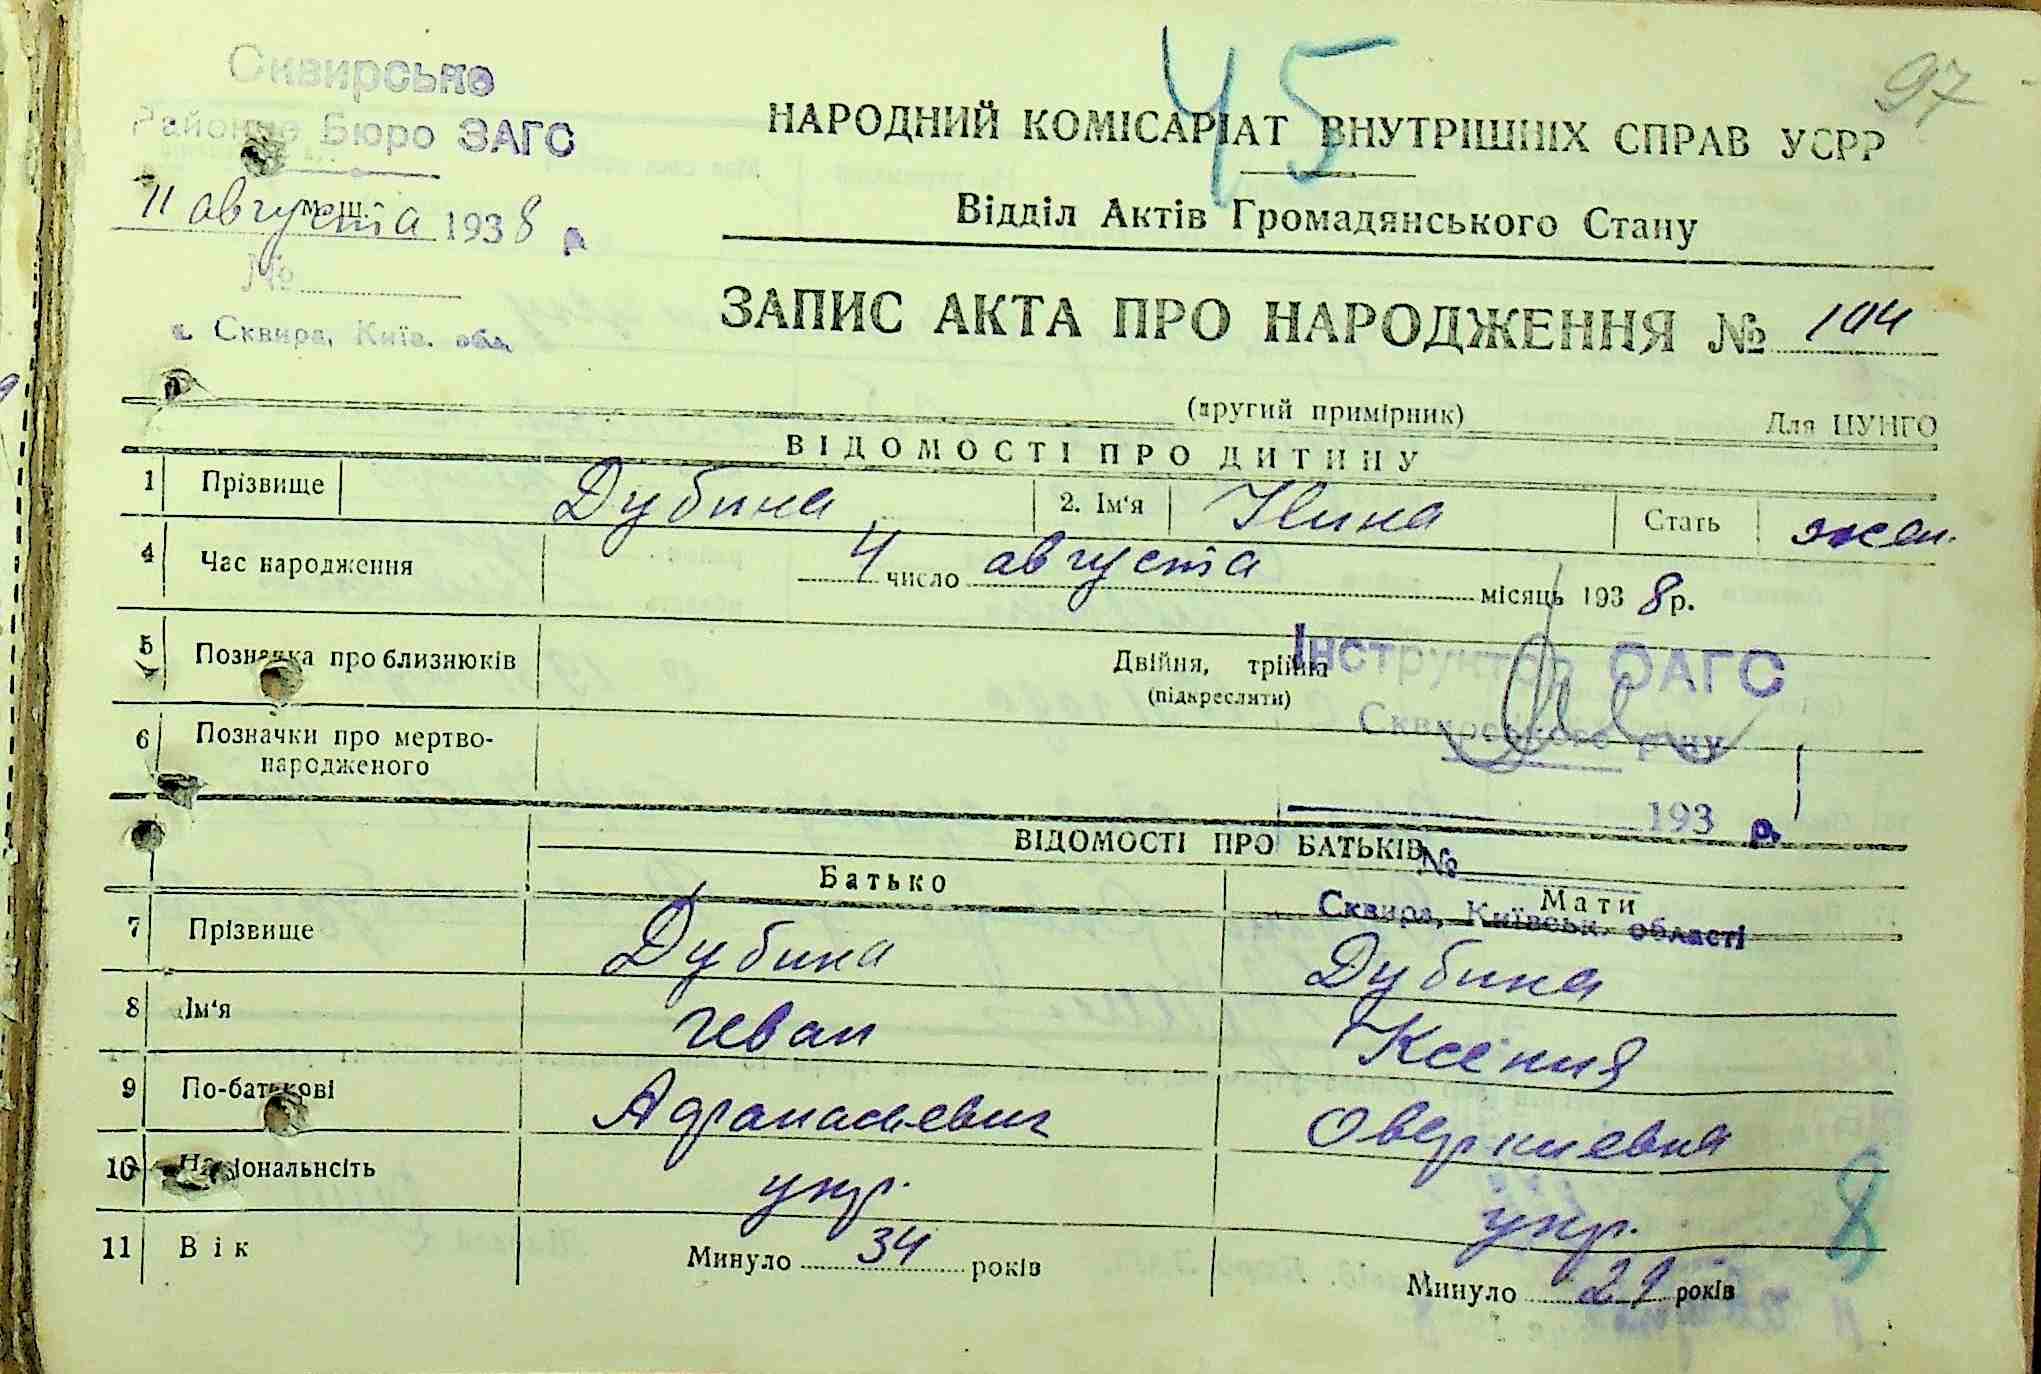 45
97
Сквирське
Районне Бюро ЗАГС
11 августа 1938 р
№
м. Сквира, Київ. обл.
НАРОДНИЙ КОМІСАРІАТ ВНУТРІШНІХ СПРАВ УСРР
Відділ Актів Громадянського Стану
ЗАПИС АКТА ПРО НАРОДЖЕННЯ № 104
(другий примірник) Для ЦУНГО
ВІДОМОСТІ ПРО ДИТИНУ
1 Прізвище Дубина 2. Ім'я Нина Стать жен.
4 Час народження 4 число августа місяць 1938 р.
5 Позначка про близнюків Двійня, трійня
(підкреслити)
Інструктор ОАГС
Сквирського р-ну
6 Позначки про мертво-
народженого
193 р.
№
Сквира, Київськ. області
ВІДОМОСТІ ПРО БАТЬКІВ
Батько Мати
7 Прізвище Дубина Дубина
8 Ім'я Иван Ксения
9 По-батькові Афанасьевич Оверкиевна
10 Національнсіть укр. укр.
8
11 Вік Минуло 34 років Минуло 29 років